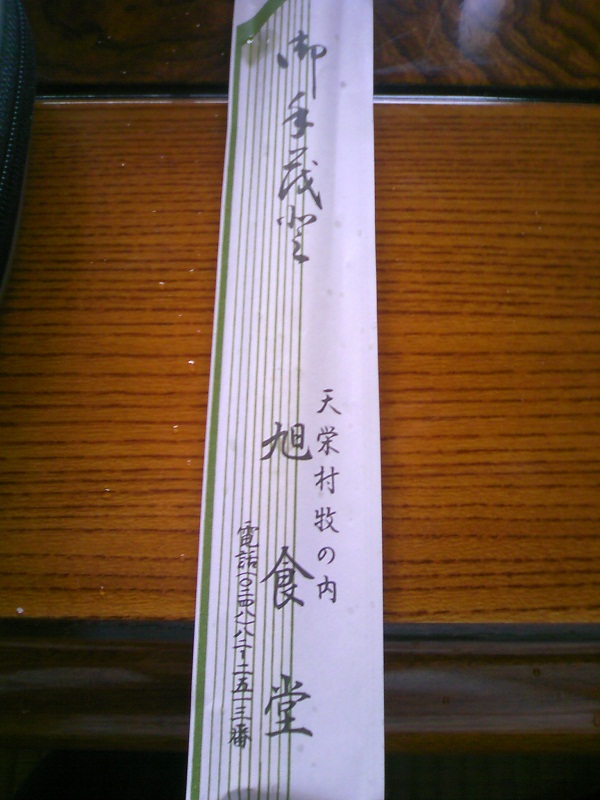 御手茂登
天栄村牧の内
旭食堂
電話(〇二四八)八二-二五一三番